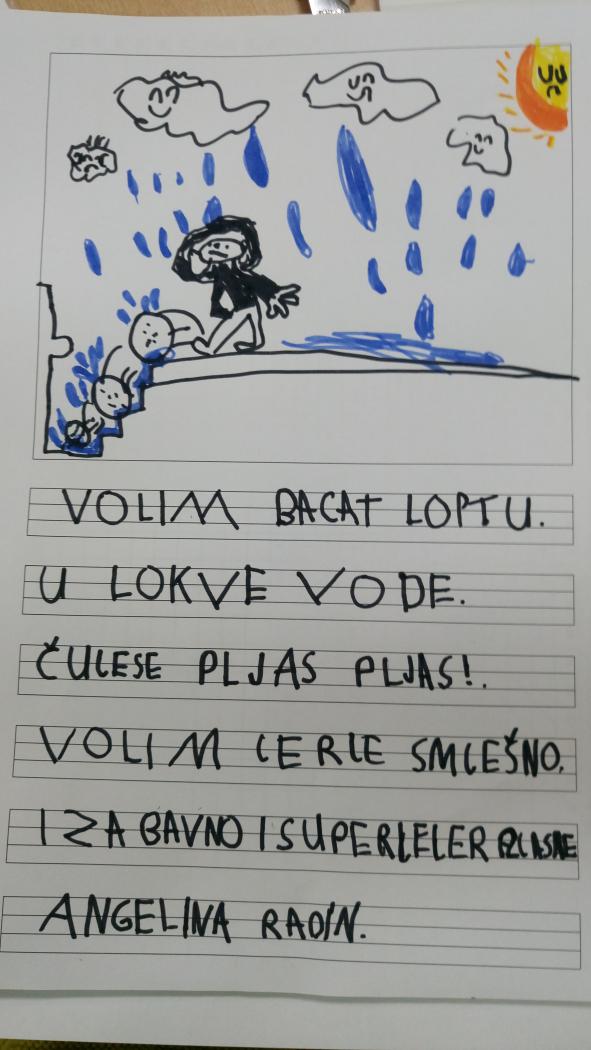 VOLIM BACAT LOPTU.
U LOKVE VODE.
ČULESE PLJAS PLJAS!.
VOLIM LERLE SMLEŠNO.
I ZABAVNO I SUPERLELER
ANGELINA RADIN.